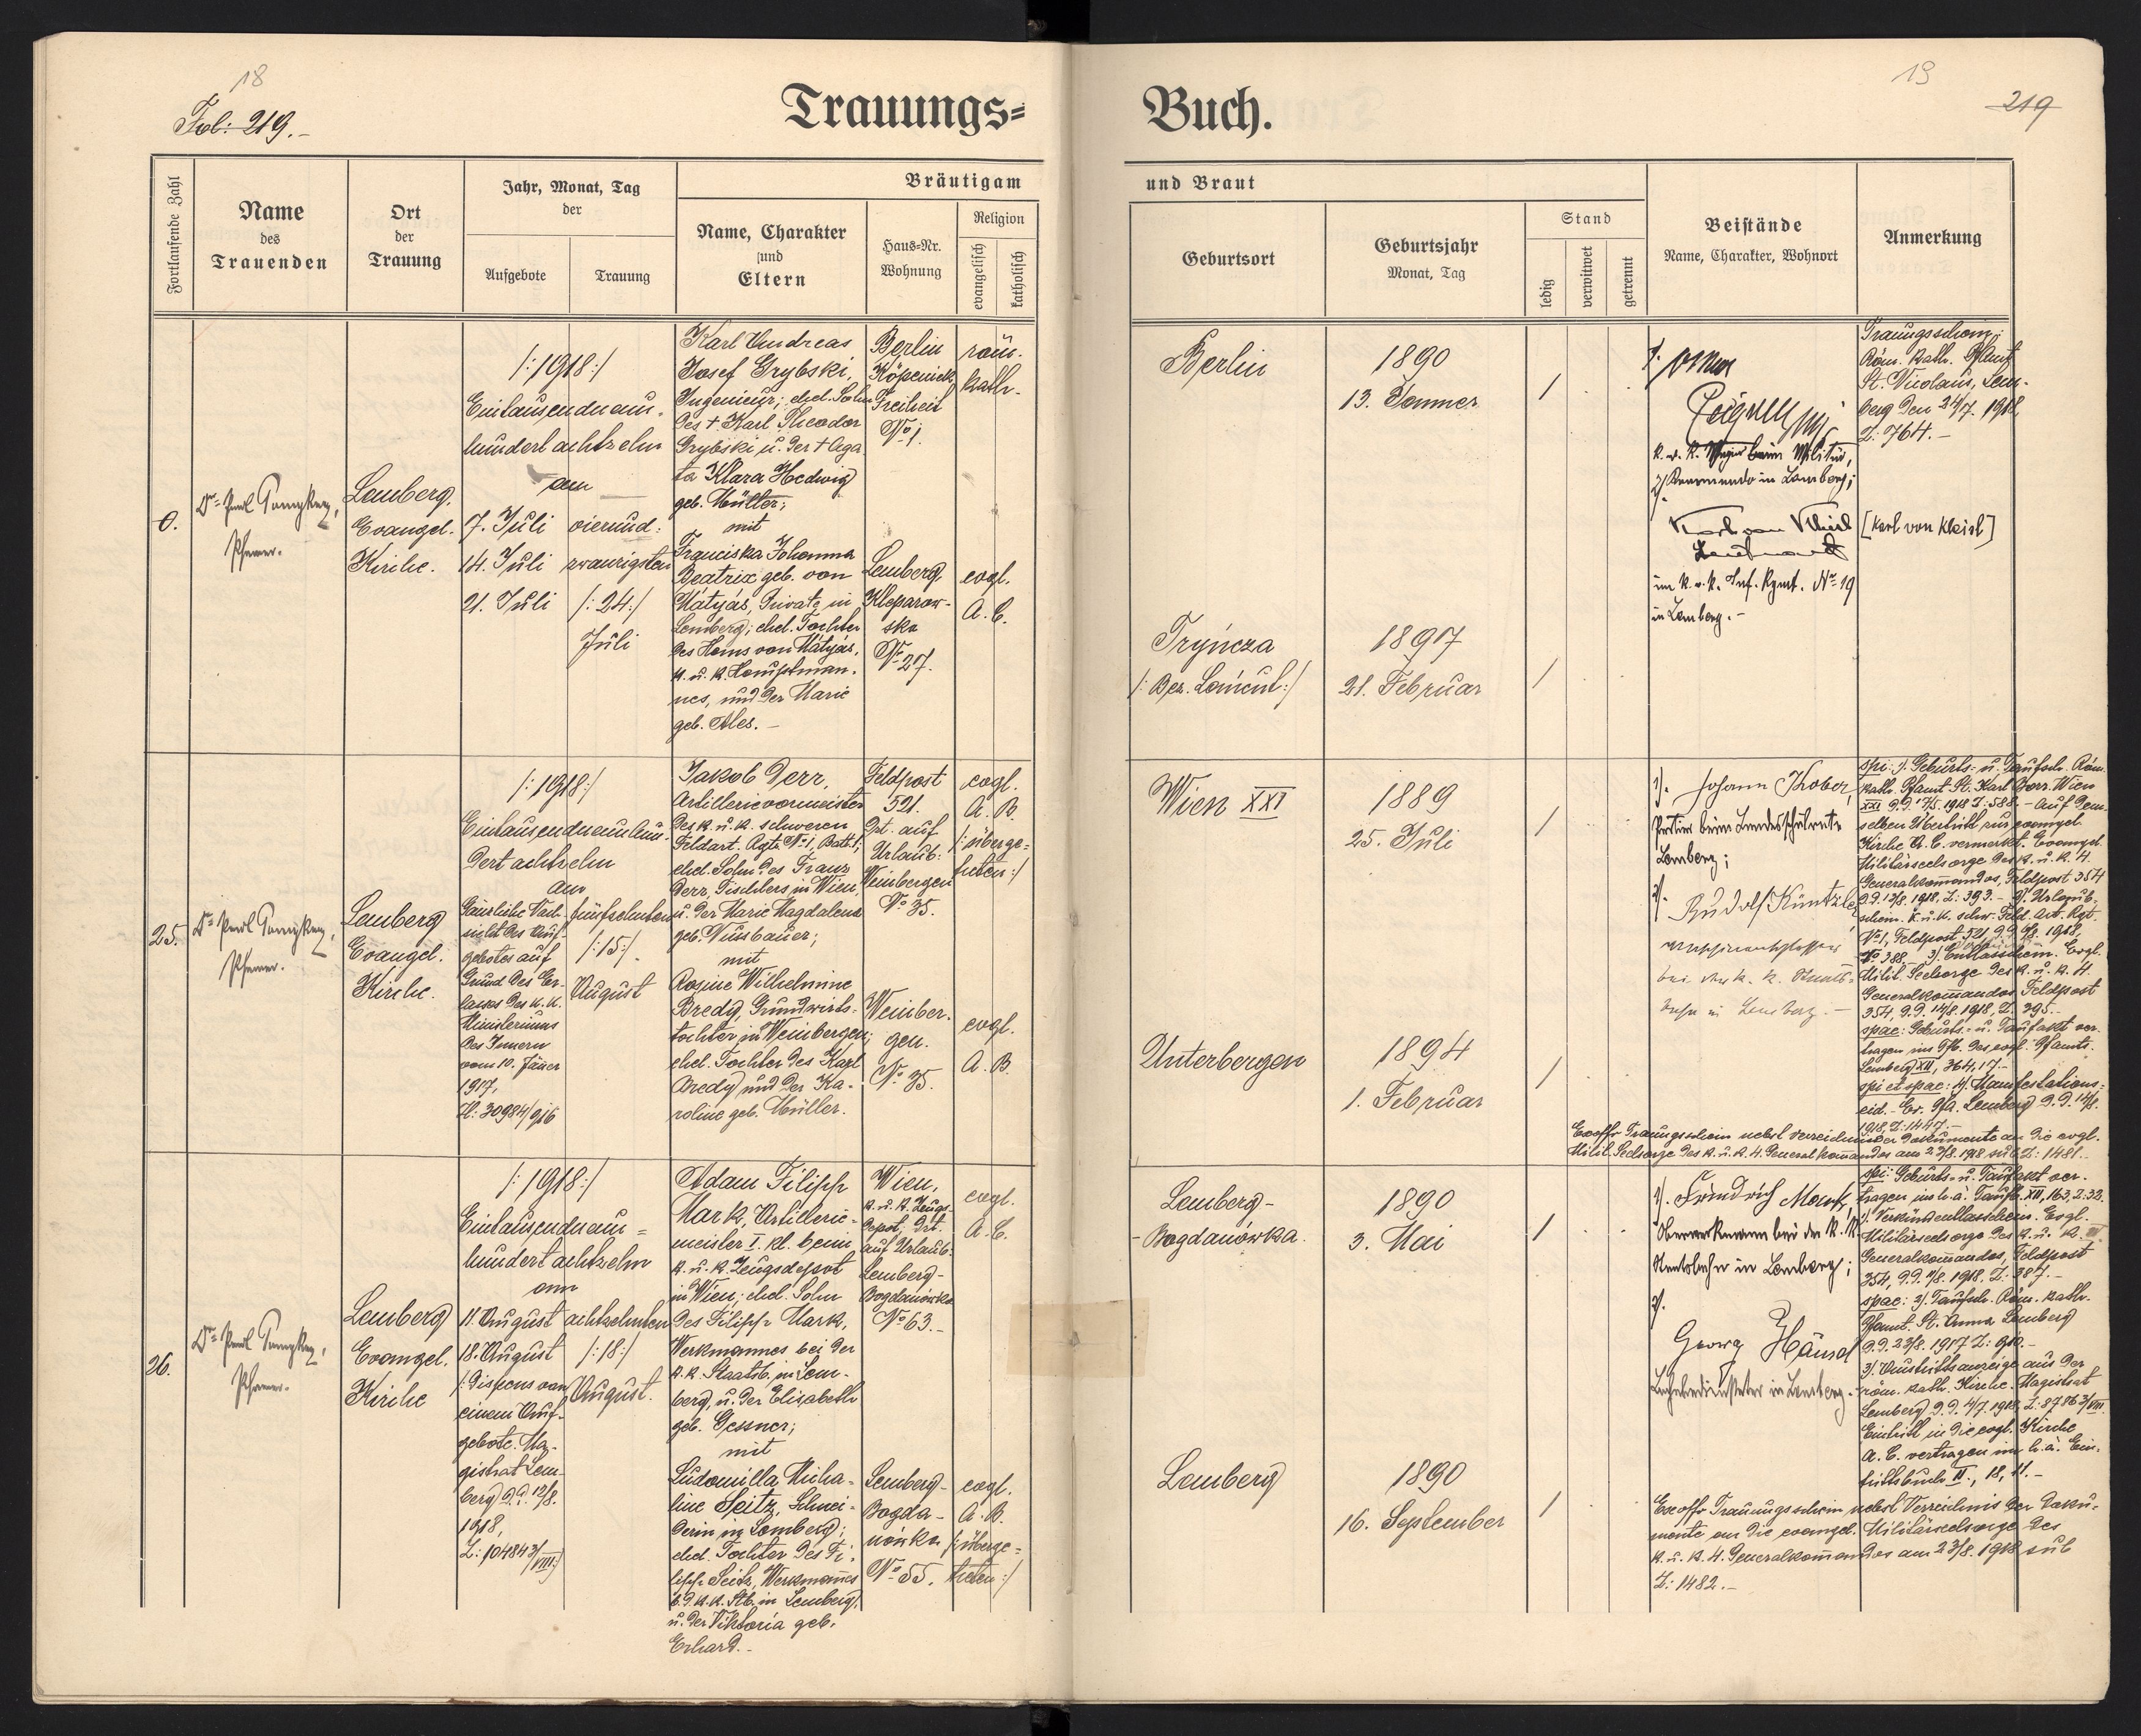 18
Fol: 219.-
Trauungs=
Fortlaufende Zahl
Name
des
Trauenden
Ort
der
Trauung
Jahr, Monat, Tag
der
Aufgebote
Trauung
Bräutigam
Name, Charakter
und
Eltern
Haus=Nr.
Wohnung
Religion
evangelisch
katholisch
0.
Pfarrer.
Lemberg.
Evangel.
Kirche.
/:1918:/
Eintausendneun-
hundert achtzehn
am
7. Juli
14. Juli
21. Juli
vierund-
zwanzigsten
/:24:/
Juli
Karl Andreas
Josef Grybski,
Ingenieur; ehel. Sohn
des † Karl Theodor
Grybski u. der † Aga-
ta Klara Hedwig
geb. Müller;
mit
Franciska Johanna
Beatrix geb. von
Mátyás, Private in
Lemberg; ehel. Tochter
des Hans von Mátyás,
k. u. k. Hauptman-
nes, und der Marie
geb. Ales.-
Berlin
Köpenick
Freiheit
No 1.
röm.
kath.
Lemberg
Kleparow-
ska
No 27.
evgl.
A. C.
25.
Pfarrer.
Lemberg
Evangel.
Kirche.
/:1918:/
Eintausendneunhun-
dert achtzehn
am
Gänzliche Nach-
sicht des Auf-
gebotes auf
Grund des Er-
lasses des k.k.
Ministeriums
des Innern
vom 10. Jäner
1917,
Zl: 30984/916
fünfzehnten
/:15:/
August
Jakob Derr,
Artillerievormeister
des k. u. k. schweren
Feldart. Rgts No 1, Batt. 1,
ehel. Sohn des Franz
Derr, Tischlers in Wien
u. der Marie Magdalena
geb. Nussbauer;
mit
Rosine Wilhelmine
Bredy, Grundwirts-
tochter in Weinbergen;
ehel. Tochter des Karl
Bredy und der Ka-
roline geb. Müller.
Feldpost
521.
Dzt. auf
Urlaub:
Weinbergen
No 35.
evgl.
A. B.
/:überge-
treten:/
Weinber-
gen.
No 35.
evgl.
A. B.
26.
Pfarrer.
Lemberg
Evangel.
Kirche
/:1918:/
Eintausendneun=
hundert achtzehn
am
11. August
18. August
/:Dispens von
einem Auf-
gebote. Ma-
gistrat Lem-
berg d.d. 12/8.
1918,
Z: 104843/VIII:/
achtzehnten
/:18:/
August.
Adam Filipp
Mark, Artillerie-
meister I. Kl. beim
k. u. k. Zeugsdepot
in Wien; ehel. Sohn
des Filipp Mark,
Werkmannes bei der
k.k. Staatsb. in Lem-
berg, u. der Elisabeth
geb. Gessner;
mit
Ludomilla Micha-
line Seitz, Schnei-
derin in Lemberg;
ehel. Tochter des Fi-
lipp Seitz, Werkmannes
b. d. k.k. Stb. in Lemberg,
u. der Viktoria geb.
Erhard.-
Wien,
k. u. k. Zeugs-
depot; dzt.
auf Urlaub:
Lemberg-
Bogdanówka
No 63.-
evgl.
A. C.
Lemberg-
Bogda-
nówka
No 55.
evgl.
A. B.
/:überge=
treten:/
19
219
Buch.
und Braut
Geburtsort
Geburtsjahr
Monat, Tag
Stand
ledig
verwitwet
getrennt
Beistände
Name, Charakter, Wohnort
Anmerkung
Berlin
1890
13. Jänner
/
1.
2/ Kommando in Lemberg;
Leutnant
im k. u. k. Inf. Rgmt. No 19
in Lemberg.-
Trauungsschein;
Röm. kath. Pfamt
St. Nicolaus, Lem-
berg den 24/7. 1918
Z: 764.-
[Karl von Kleist]
Tryńcza
/: Bez. Łańcut:/
1897
21. Februar
/
Wien XXI
1889
25. Juli
/
1). Johann Kober,
Portier beim Landesschulrate
Lemberg;
2). Rudolf Küntzler
in Lemberg.-
spi: 1). Geburts- u. Taufsch. Röm.
kath. Pfamt St. Karl Borr. Wien
XXI d.d. 17/5. 1918 Z: 588.- Auf dem-
selben Übertritt zur evangel.
Kirche A. C. vermerkt. Evangel.
Militärseelsorge des k. u. k. 4.
Generalkommandos, Feldpost 354
d.d. 13/8. 1918, Z: 393.- 2). Urlaub-
schein. k. u. k. schw. Feld. Art. Rgt.
No 1, Feldpost 521, d.d. 9/8. 1918,
No 388.- 3). Entlasschein. Evgl.
Milit. Seelsorge des k. u. k. 4.
Generalkommandos, Feldpost
354, d.d. 14/8. 1918, Z. 395.-
spae: Geburts.- u. Taufakt ver-
tragen im Gfb. des evgl. Pfamts.
Lemberg XII, 364, 17.-
spi et spae: 4). Manifestations-
eid.- Ev. Pfa. Lemberg d.d. 14/8.
1918, Z: 1447.-
Unterbergen
1894
1. Februar
/
Exoffo Trauungsschein nebst Verzeichnis der Dokumente an die evgl.
Milit. Seelsorge des k. u. k. 4. Generalkommandos am 23/8. 1918 sub Z: 1481.-
Lemberg-
-Bogdanówka.
1890
3. Mai
/
1). Friedrich Mark,
Oberwerkmann bei der k. k.
Staatsbahn in Lemberg;
2).
Georg Hänsel
Bahnbediensteter in Lemberg.-
spi: Geburts- u. Taufakt ver-
tragen im h. ä. Taufb. XII, 163, Z. 32.
2). Verkündentlasschein. Evgl.
Militärseelsorge des k. u. k.
Generalkommandos, Feldpost
354, d.d. 9/8. 1918. Z: 387.-
spae: 2). Taufsch. Röm. kath.
Pfamt. St. Anna Lemberg
d.d. 23/8. 1917 Z: 910.-
3). Austrittsanzeige aus der
röm. kath. Kirche. Magistrat
Lemberg d.d. 4/7. 1918, Z: 87863/VIII.
Eintritt in die evgl. Kirche
A. C. vertragen im h. ä. Ein-
trittsbuch II., 18, 11.-
Lemberg
1890
16. September
/
Exoffo Trauungsschein nebst Verzeichnis der Doku-
mente an die evangel. Militärseelsorge des
k. u. k. 4. Generalkommandos am 23/8. 1918 sub
Z: 1482.-